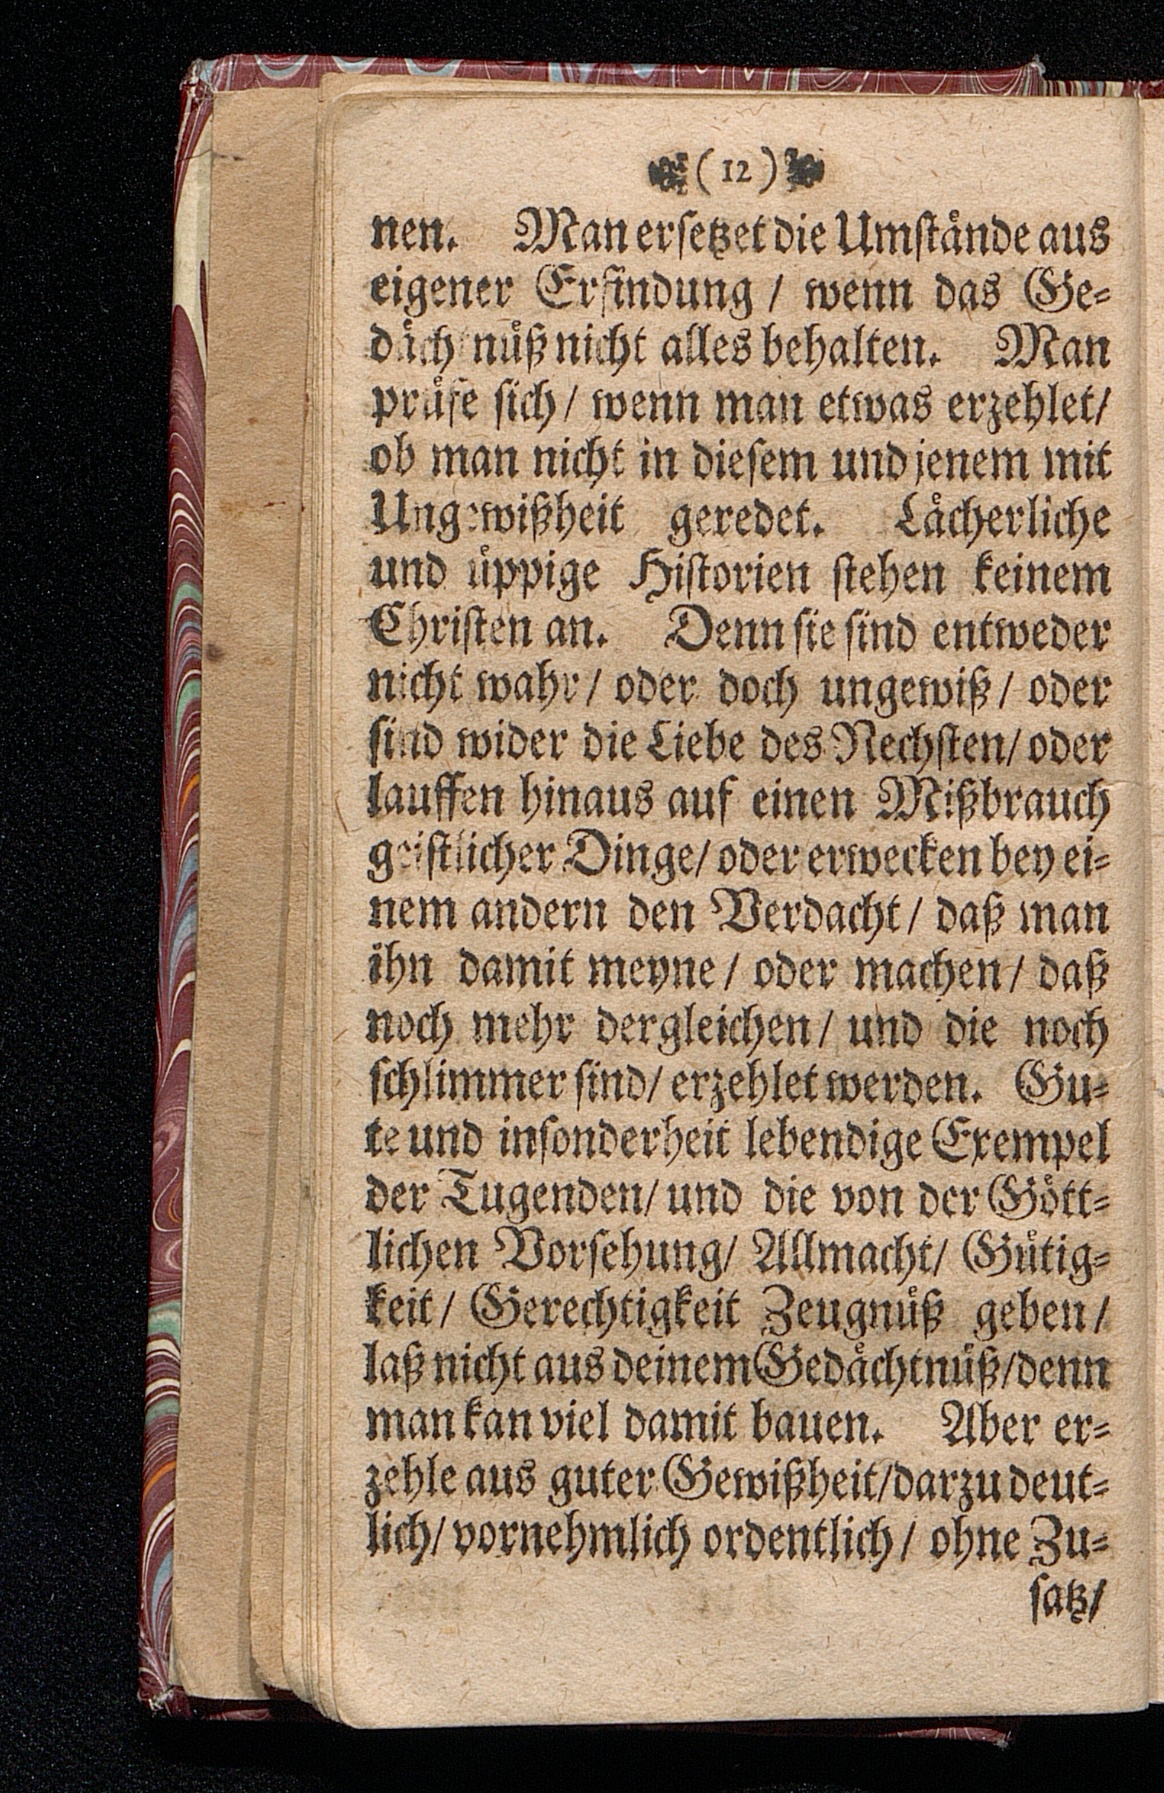 (12)
nen. Man ersetzet die Umstände aus
eigener Erfindung / wenn das Ge-
dächtnüß nicht alles behalten. Man
prüfe sich / wenn man etwas erzehlet /
ob man nicht in diesem und jenem mit
Ungewißheit geredet. Lächerliche
und üppige Historien stehen keinem
Christen an. Denn sie sind entweder
nicht wahr / oder doch ungewiß / oder
sind wider die Liebe des Nechsten / oder
lauffen hinaus auf einen Mißbrauch
geistlicher Dinge / oder erwecken bey ei-
nem andern den Verdacht / daß man
ihn damit meyne / oder machen / daß
noch mehr dergleichen / und die noch
schlimmer sind / erzehlet werden. Gu-
te und insonderheit lebendige Exempel
der Tugenden / und die von der Gött-
lichen Vorsehung / Allmacht / Gütig-
keit / Gerechtigkeit Zeugnüß geben /
laß nicht aus deinem Gedächtnüß / denn
man kan viel damit bauen. Aber er-
zehle aus guter Gewißheit / darzu deut-
lich / vornehmlich ordentlich / ohne Zu-
satz /